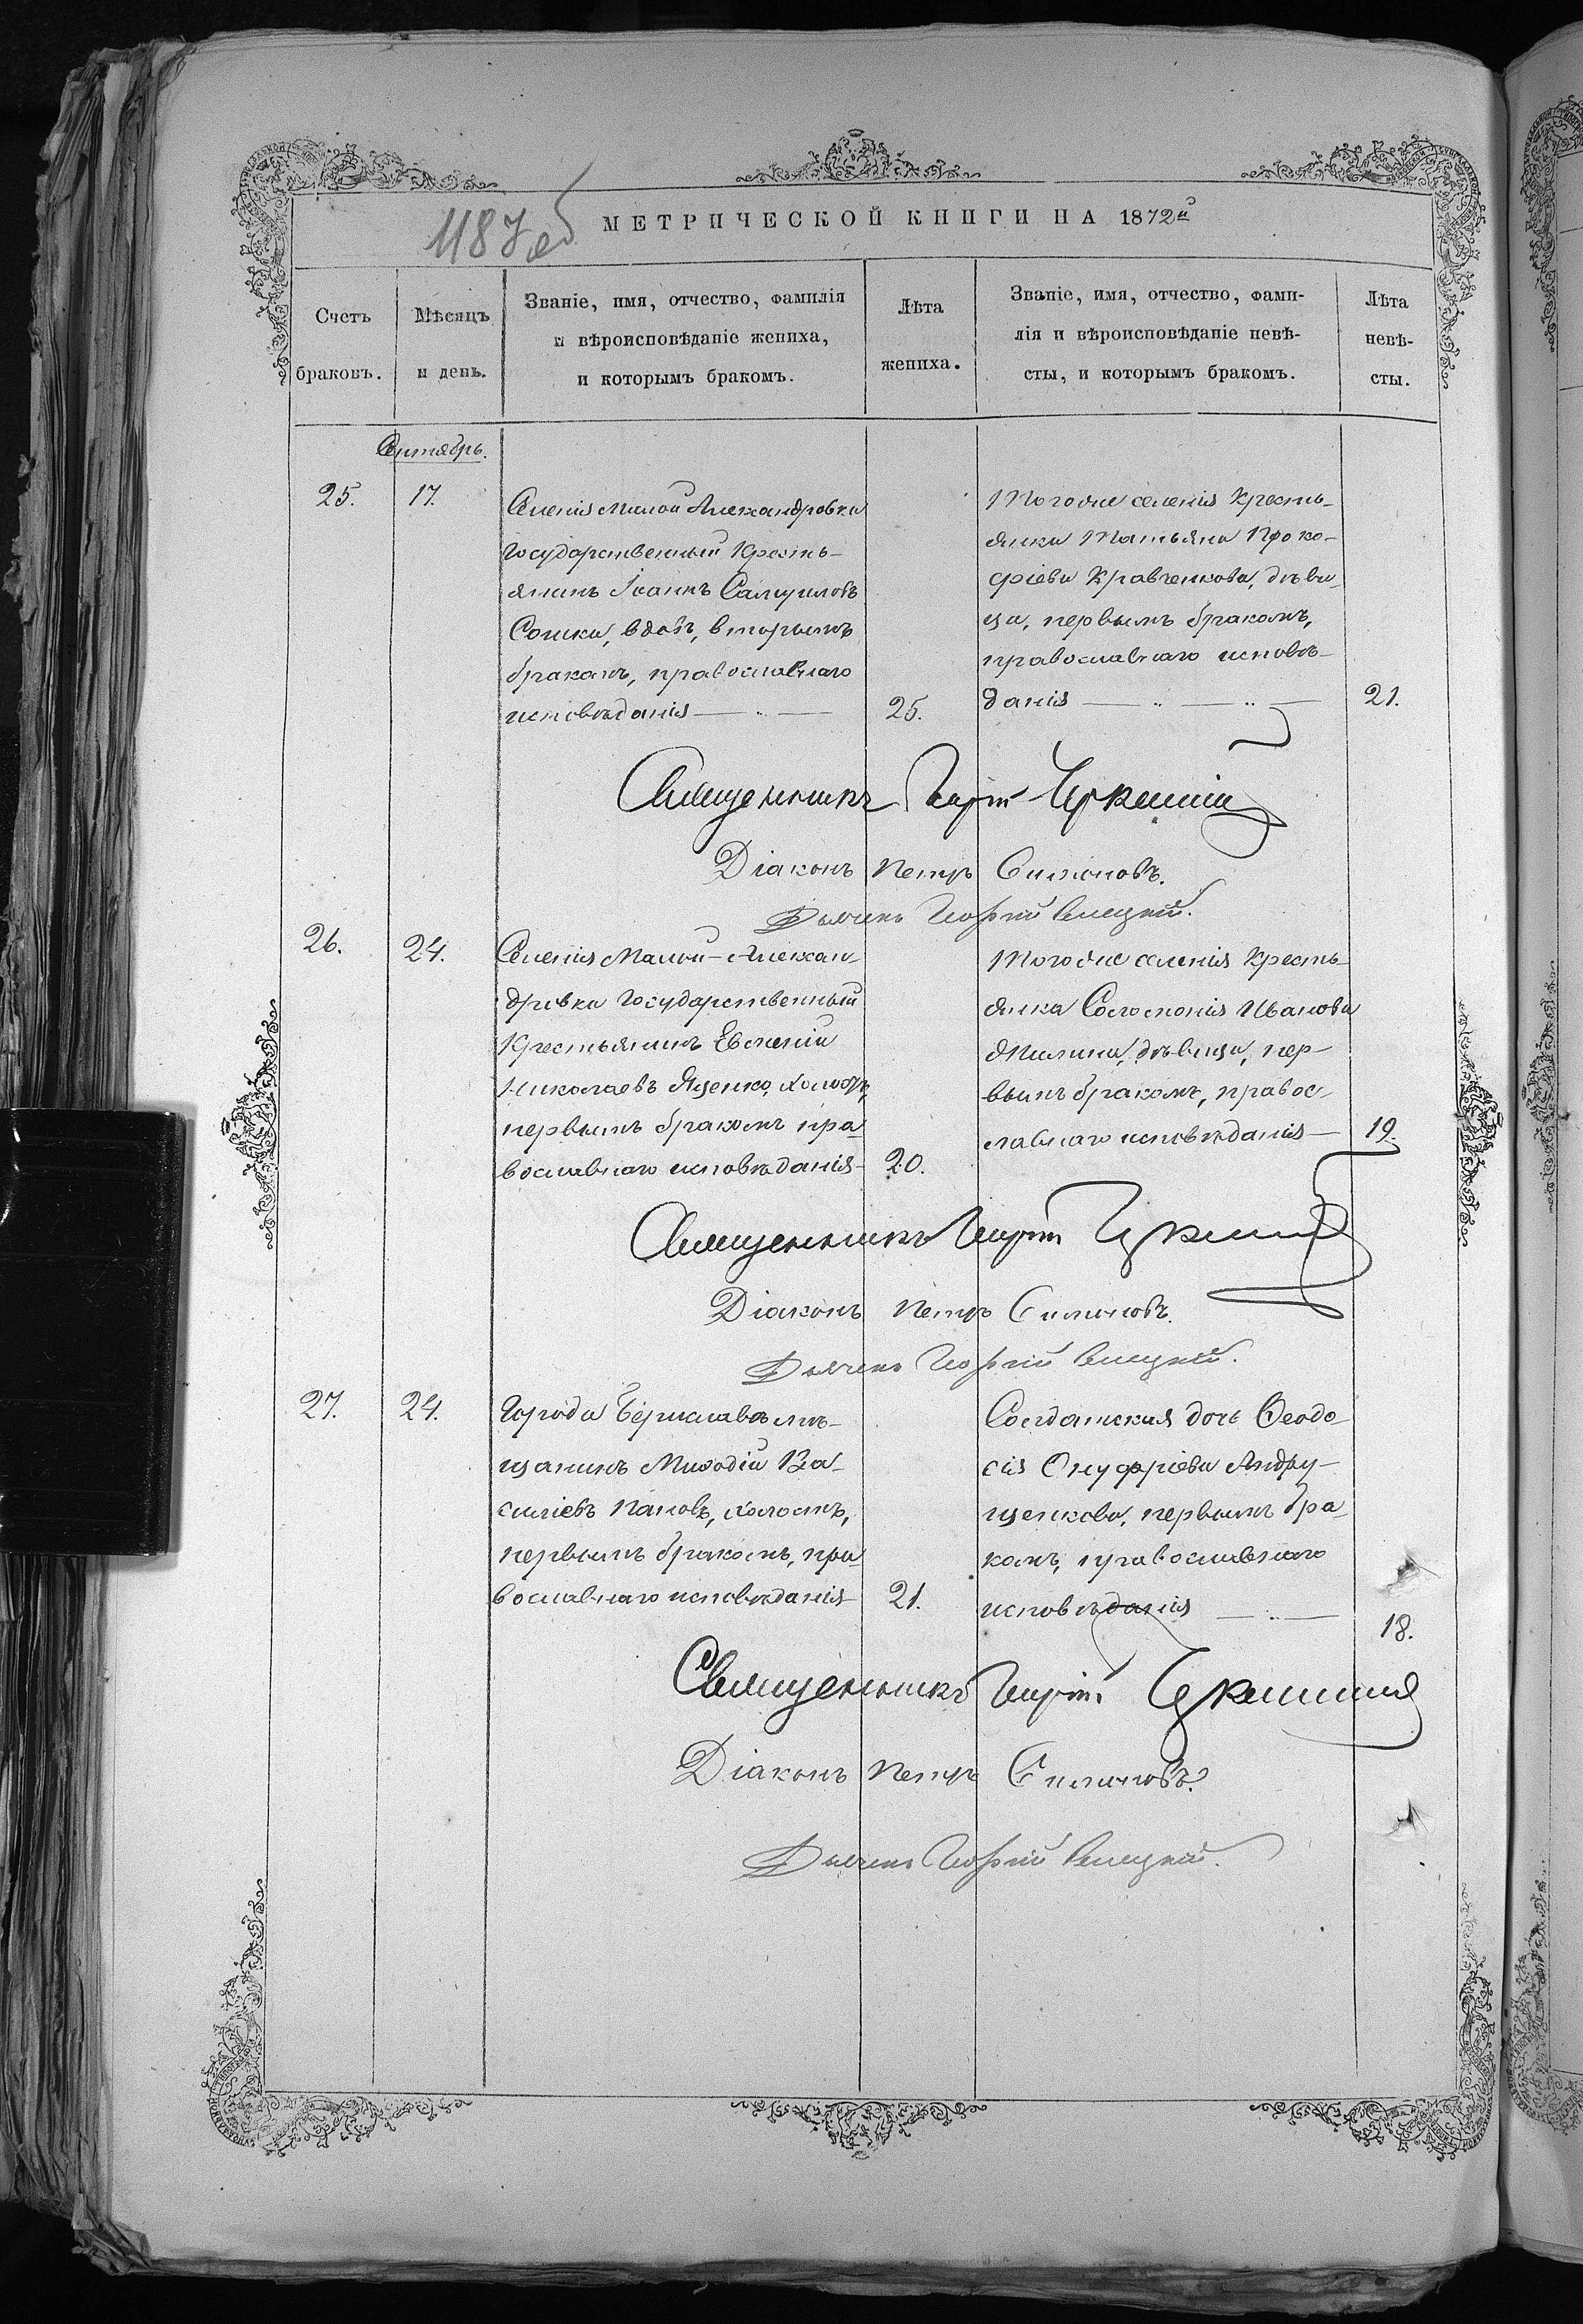 1187об
МЕТРИЧЕСКОЙ КНИГИ НА 1872й
Счетъ браковъ.
Мѣсяцъ и день.
Званіе, имя, отчество, фамилія
и вѣроисповѣданіе жениха,
и которымъ бракомъ.
Лѣта жениха.
Званіе, имя, отчество, фами-
лія и вѣроисповѣданіе невѣ-
сты, и которымъ бракомъ.
Лѣта невѣ-
сты.
Сентябрь.
25.
17.
Селенія Малой Александровки
государственный Кресть-
янинъ Іоаннъ Самуиловъ
Сошка, вдовъ, вторымъ
бракомъ, православнаго
исповѣданія
25.
Тогоже селенія Кресть-
янка Татьяна Проко-
фіева Кравченкова, дѣви-
ца, первымъ бракомъ,
православнаго исповѣ-
данія
21.
Священникъ
Діаконъ Петръ Симоновъ.
Дьячекъ Георгій
26.
24.
Селенія Малой-Алексан-
дровки Государственный
Крестьянинъ Евгеній
Николаевъ Яценко, холостъ,
первымъ бракомъ пра-
вославнаго исповѣданія
20.
Тогоже селенія Кресть-
янка Соломонія Иванова
дѣвица, пер-
вымъ бракомъ, правос-
лавнаго исповѣданія
19.
Священникъ
Діаконъ Петръ Симоновъ.
Дьячекъ Георгій
27.
24.
Города Берислава мѣ-
щанинъ Меѳодій Ва-
силіевъ Пановъ, холостъ,
первымъ бракомъ, пра-
вославнаго исповѣданія
21.
Солдатская дочь Ѳеодо-
сія Онуфріева Андру-
щенкова, первымъ бра-
комъ, православнаго
исповѣданія
18.
Священникъ
Діаконъ Петръ Симоновъ.
Дьячекъ Георгій